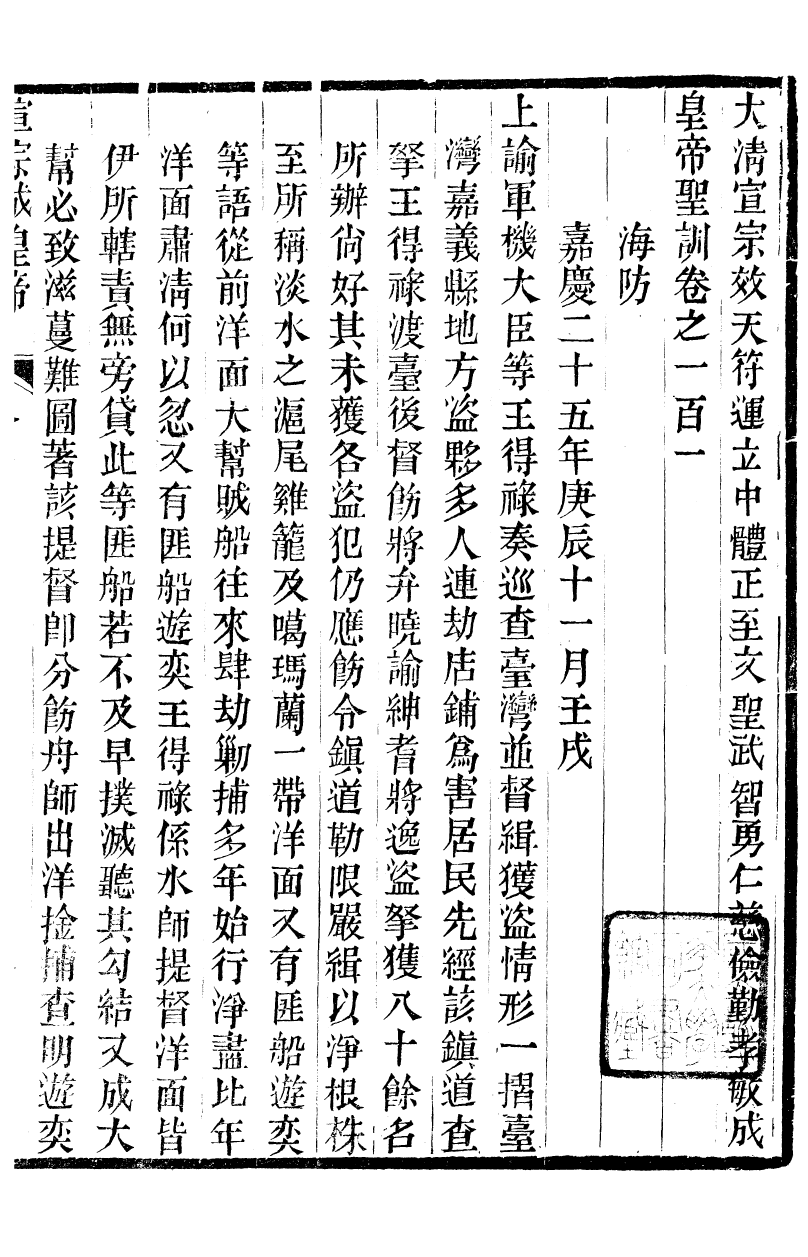 大淸宣宗效天符運立中體正至文聖武智勇仁慈儉勤孝敏成
皇帝聖訓卷之一百一
海防
嘉慶二十五年庚辰十一月壬戌
上諭軍機大臣等王得祿奏巡查臺灣並督緝獲盜情形一摺臺
灣嘉義縣地方盜夥多人連劫店鋪爲害居民先經該鎮道查
拏王得祿渡臺後督飭將弁曉諭紳耆將逸盜拏獲八十餘名
所辦尙好其未獲各盜犯仍應飭令鎮道勒限嚴緝以淨根株
至所稱淡水之滬尾雞籠及噶瑪蘭一帶洋面又有匪船遊奕
等語從前洋面大幫賊船往來肆劫勦捕多年始行淨盡比年
洋面肅淸何以忽又有匪船遊奕王得祿係水師提督洋面皆
伊所轄責無旁貸此等匪船若不及早撲滅聽其勾結又成大
幫必致滋蔓難圖著該提督卽分飭舟師出洋捡捕查明遊奕
宣宗成皇帝